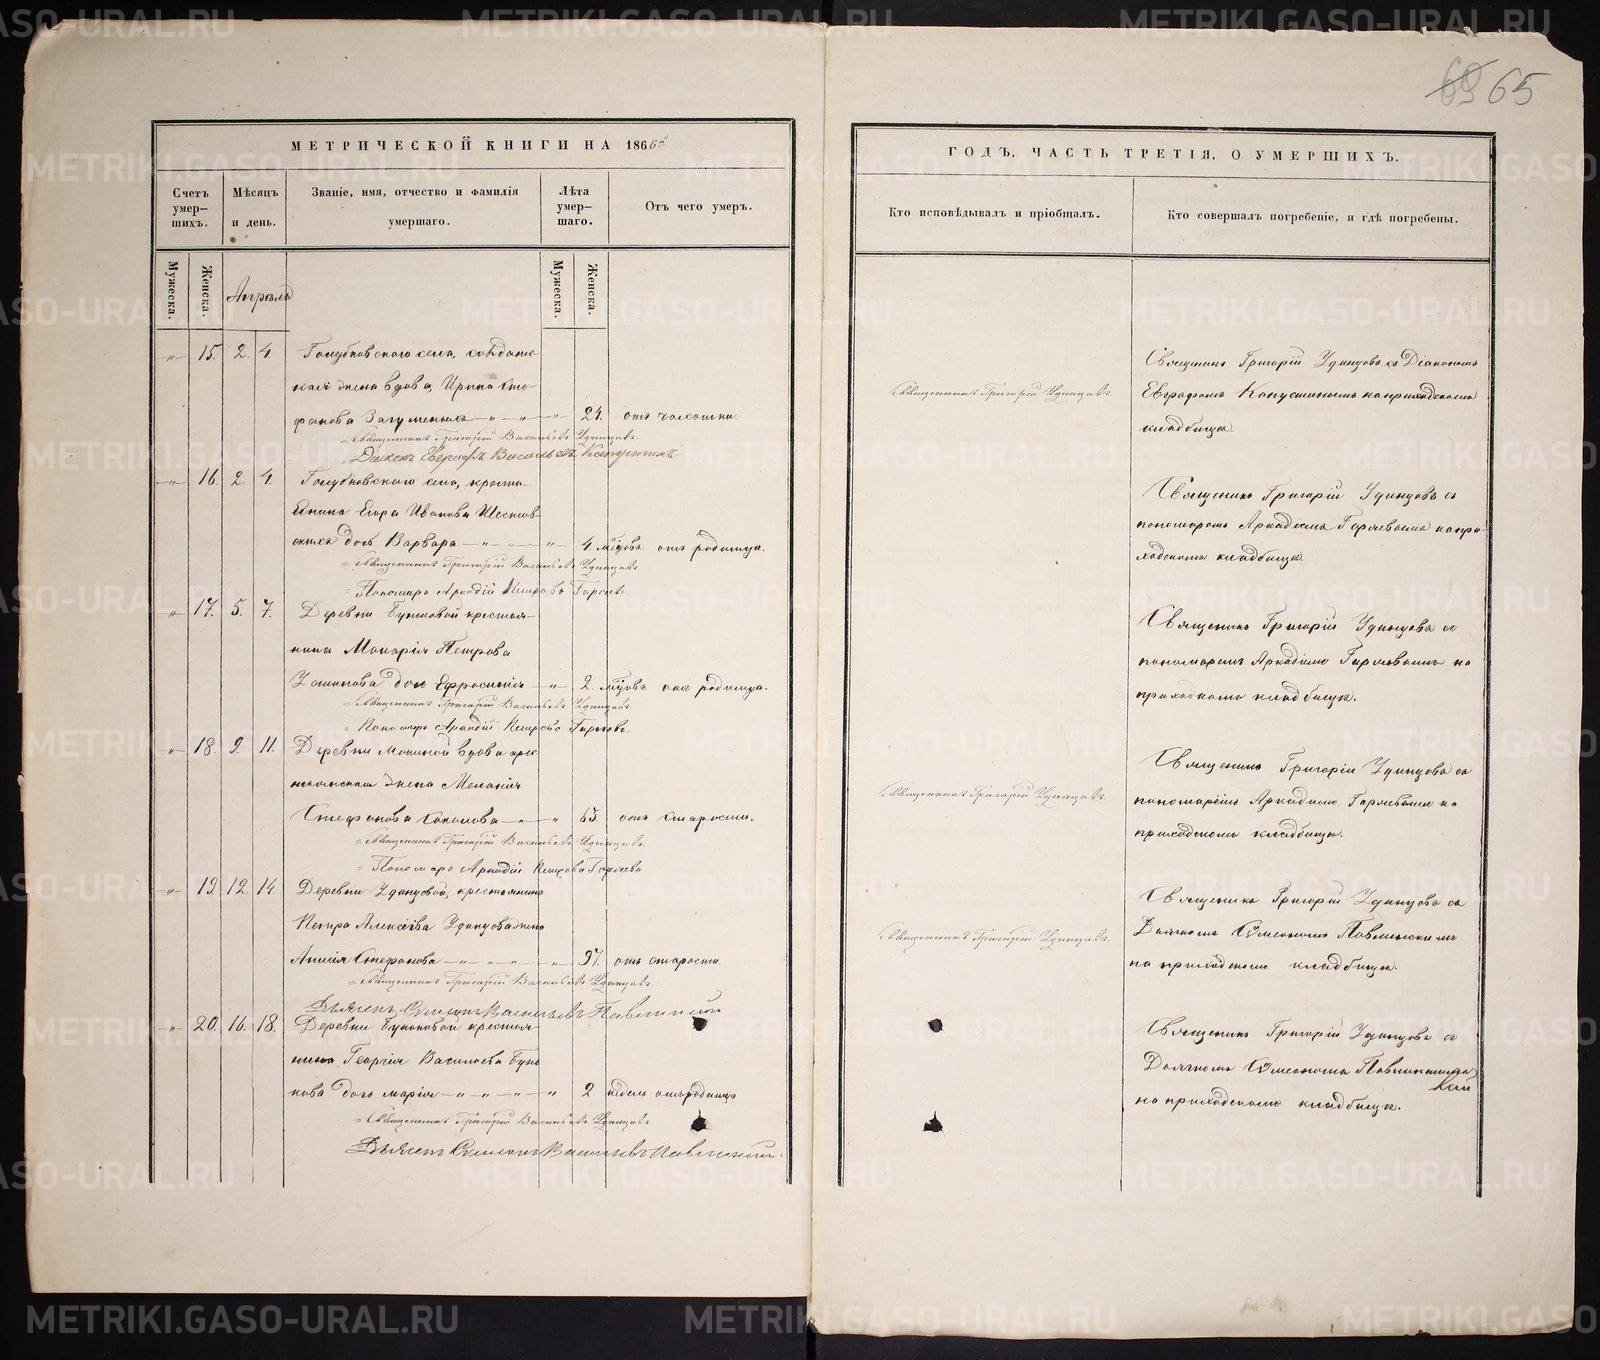 69 65
МЕТРИЧЕСКОЙ КНИГИ НА 1866й
Счетъ умер-шихъ.
Мѣсяцъ и день.
Званіе, имя, отчество и фамилія умершаго.
Лѣта умер-шаго.
Отъ чего умеръ.
Мужеска.
Женска.
Апрѣль
Мужеска.
Женска.
" 15. 2. 4. Голубковскаго села, солдатс
кая жена вдова, Ирина Сте
фанова Загуменныхъ " " " 24. отъ чахотки.
Священникъ Григорій Васильевъ Удинцовъ.
Дьяконъ Евграфъ Васильевъ Капустинъ
" 16. 2. 4. Голубковскаго села, кресть
янина Егора Иванова
дочь Варвара " " " 4. мѣсяцовъ отъ родимца.
Священникъ Григорій Васильевъ Удинцовъ
Пономарь Аркадій Петровъ Горяевъ.
" 17. 5. 7. Деревни Бунковой крестья
нина Макарія Петрова
дочь Ефросинія " 2. мѣсяцовъ отъ родимца.
Священникъ Григорій Васильевъ Удинцовъ.
Пономарь Аркадій Петровъ Горяевъ.
" 18. 9. 11. Деревни Мокиной вдова крес
тьянская жена Меланія
Стефанова Соколова " " 65. отъ старости.
Священникъ Григорій Васильевъ Удинцовъ.
Пономарь Аркадій Петровъ Горяевъ
" 19. 12. 14. Деревни Удинцовой, крестьянина
Петра Алексѣева Удинцова жена
Стефанова " " " " 97. отъ старости.
Священникъ Григорій Васильевъ Удинцовъ.
Дьячекъ Симеонъ Васильевъ Павлинскій
" 20. 16. 18. Деревни Бунковой крестья
нина Георгія Васильева Бун
кова дочь Марія " " " " 2 недѣль отъ родимца
Священникъ Григорій Васильевъ Удинцовъ.
Дьячекъ Симеонъ Васильевъ Павлинскій.
ГОДЪ, ЧАСТЬ ТРЕТІЯ, О УМЕРШИХЪ.
Кто исповѣдывалъ и пріобщалъ.
Кто совершалъ погребеніе, и гдѣ погребены.
Священникъ Григорій Удинцовъ.
Священникъ Григорій Удинцовъ съ Діакономъ
Евграфомъ Капустинымъ на приходскомъ
кладбищѣ.
Священникъ Григорій Удинцовъ съ
пономаремъ Аркадіемъ Горяевымъ на при
ходскомъ кладбищѣ.
Священникъ Григорій Удинцовъ съ
пономаремъ Аркадіемъ Горяевымъ на
приходскомъ кладбищѣ.
Священникъ Григорій Удинцовъ.
Священникъ Григорій Удинцовъ съ
пономаремъ Аркадіемъ Горяевымъ на
приходскомъ кладбищѣ.
Священникъ Григорій Удинцовъ.
Священникъ Григорій Удинцовъ съ
Дьячкомъ Симеономъ Павлинскимъ
на приходскомъ кладбищѣ.
Священникъ Григорій Удинцовъ съ
Дьячкомъ Симеономъ Павлинскимъ
на приходскомъ кладбищѣ.
METRIKI.GASO-URAL.RU